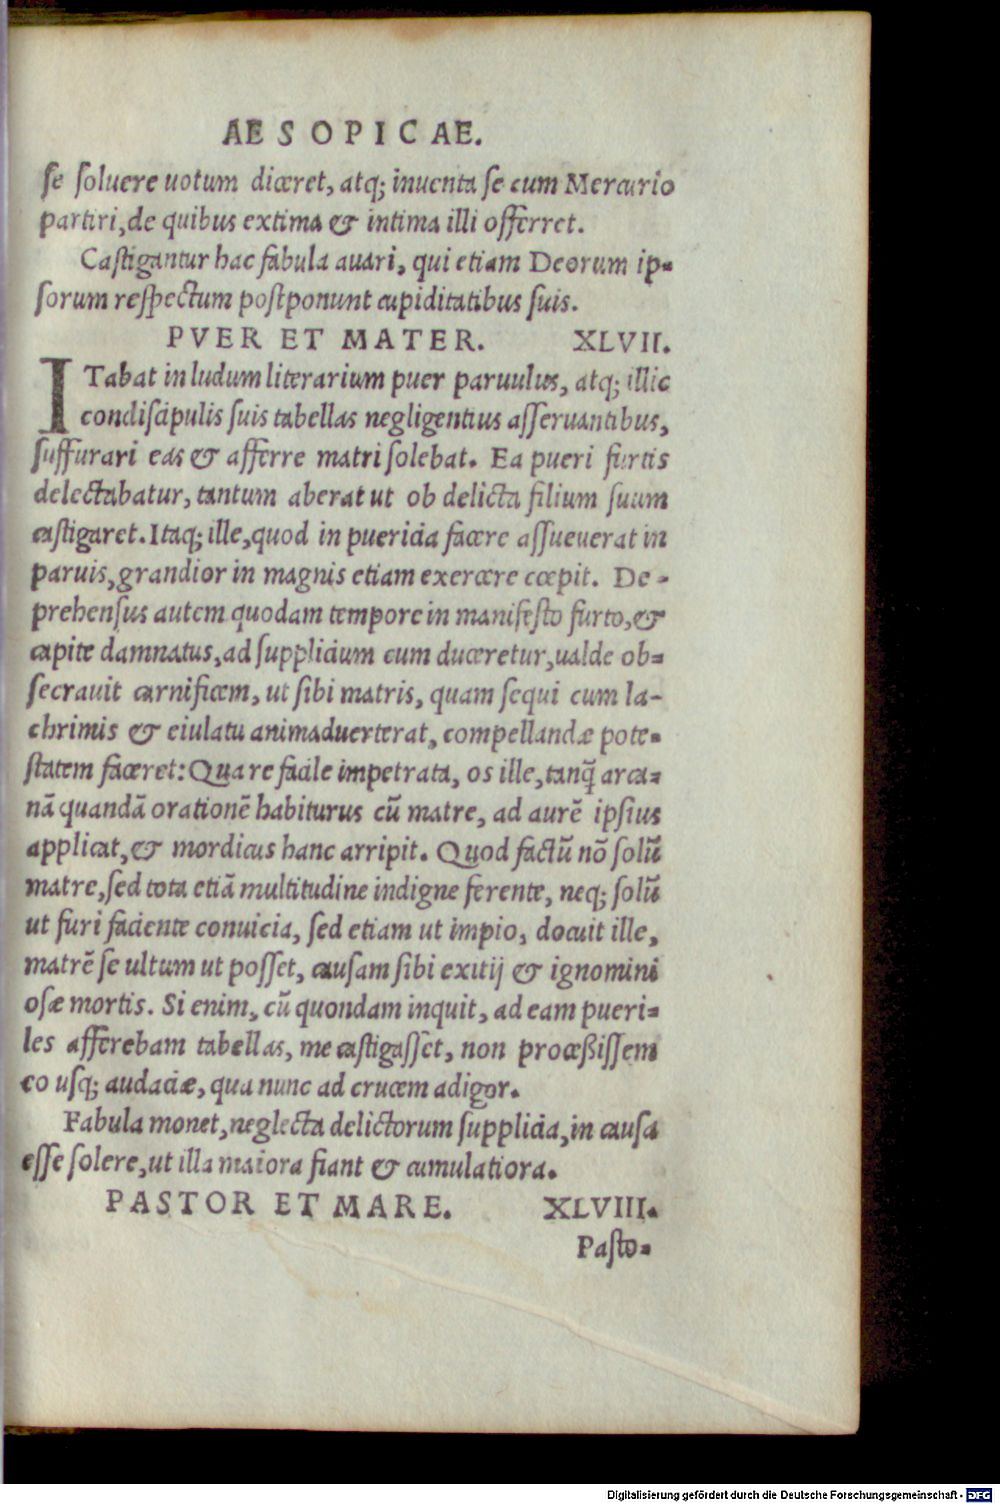 AESOPICAE.
ſe ſoluere uotum diceret, atq; inuenta ſe cum Mercurio
partiri, de quibus extima & intima illi offerret.
Caſtigantur hac fabula auari, qui etiam Deorum ip-
ſorum reſpectum poſtponunt cupiditatibus ſuis.
PVER ET MATER. XLVII.
ITabat in ludum literarium puer paruulus, atq; illic
condiſcipulis ſuis tabellas negligentius aſſeruantibus,
ſuffurari eas & afferre matri ſolebat. Ea pueri furtis
delectabatur, tantum aberat ut ob delicta filium ſuum
caſtigaret. Itaq; ille, quod in puericia facere aſſueuerat in
paruis, grandior in magnis etiam exercere cœpit. De-
prehenſus autem quodam tempore in manifeſto furto, &
capite damnatus, ad ſupplicium cum duceretur, ualde ob-
ſecrauit carnificem, ut ſibi matris, quam ſequi cum la-
chrimis & eiulatu animaduerterat, compellandæ pote-
ſtatem faceret: Qua re facile impetrata, os ille, tanq̃ arca-
nã quandã orationẽ habiturus cũ matre, ad aurẽ ipſius
applicat, & mordicus hanc arripit. Quod factũ nõ ſolũ
matre, ſed tota etiã multitudine indigne ferente, neq; ſolũ
ut furi faciente conuicia, ſed etiam ut impio, docuit ille,
matrẽ ſe ultum ut poſſet, cauſam ſibi exitij & ignomini
oſæ mortis. Si enim, cũ quondam inquit, ad eam pueri-
les afferebam tabellas, me caſtigaſſet, non proceßiſſem
eo uſq; audaciæ, qua nunc ad crucem adigor.
Fabula monet, neglecta delictorum ſupplicia, in cauſa
eſſe ſolere, ut illa maiora fiant & cumulatiora.
PASTOR ET MARE. XLVIII.
Paſto-
Digitalisierung gefördert durch die Deutsche Forschungsgemeinschaft - DFG